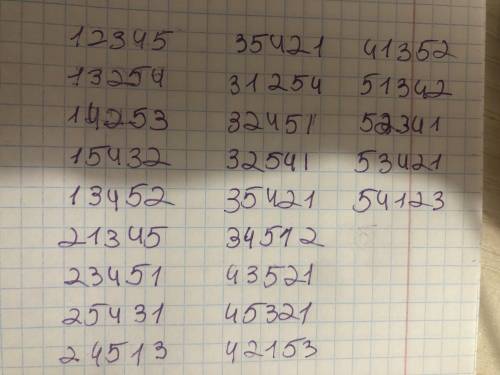 12345 35421 41352
13254 31254 51342
14253 32451 52341
15432 32541 53421
13452 35421 54123
21345 34512
23451 43521
25431 45321
24513 42153